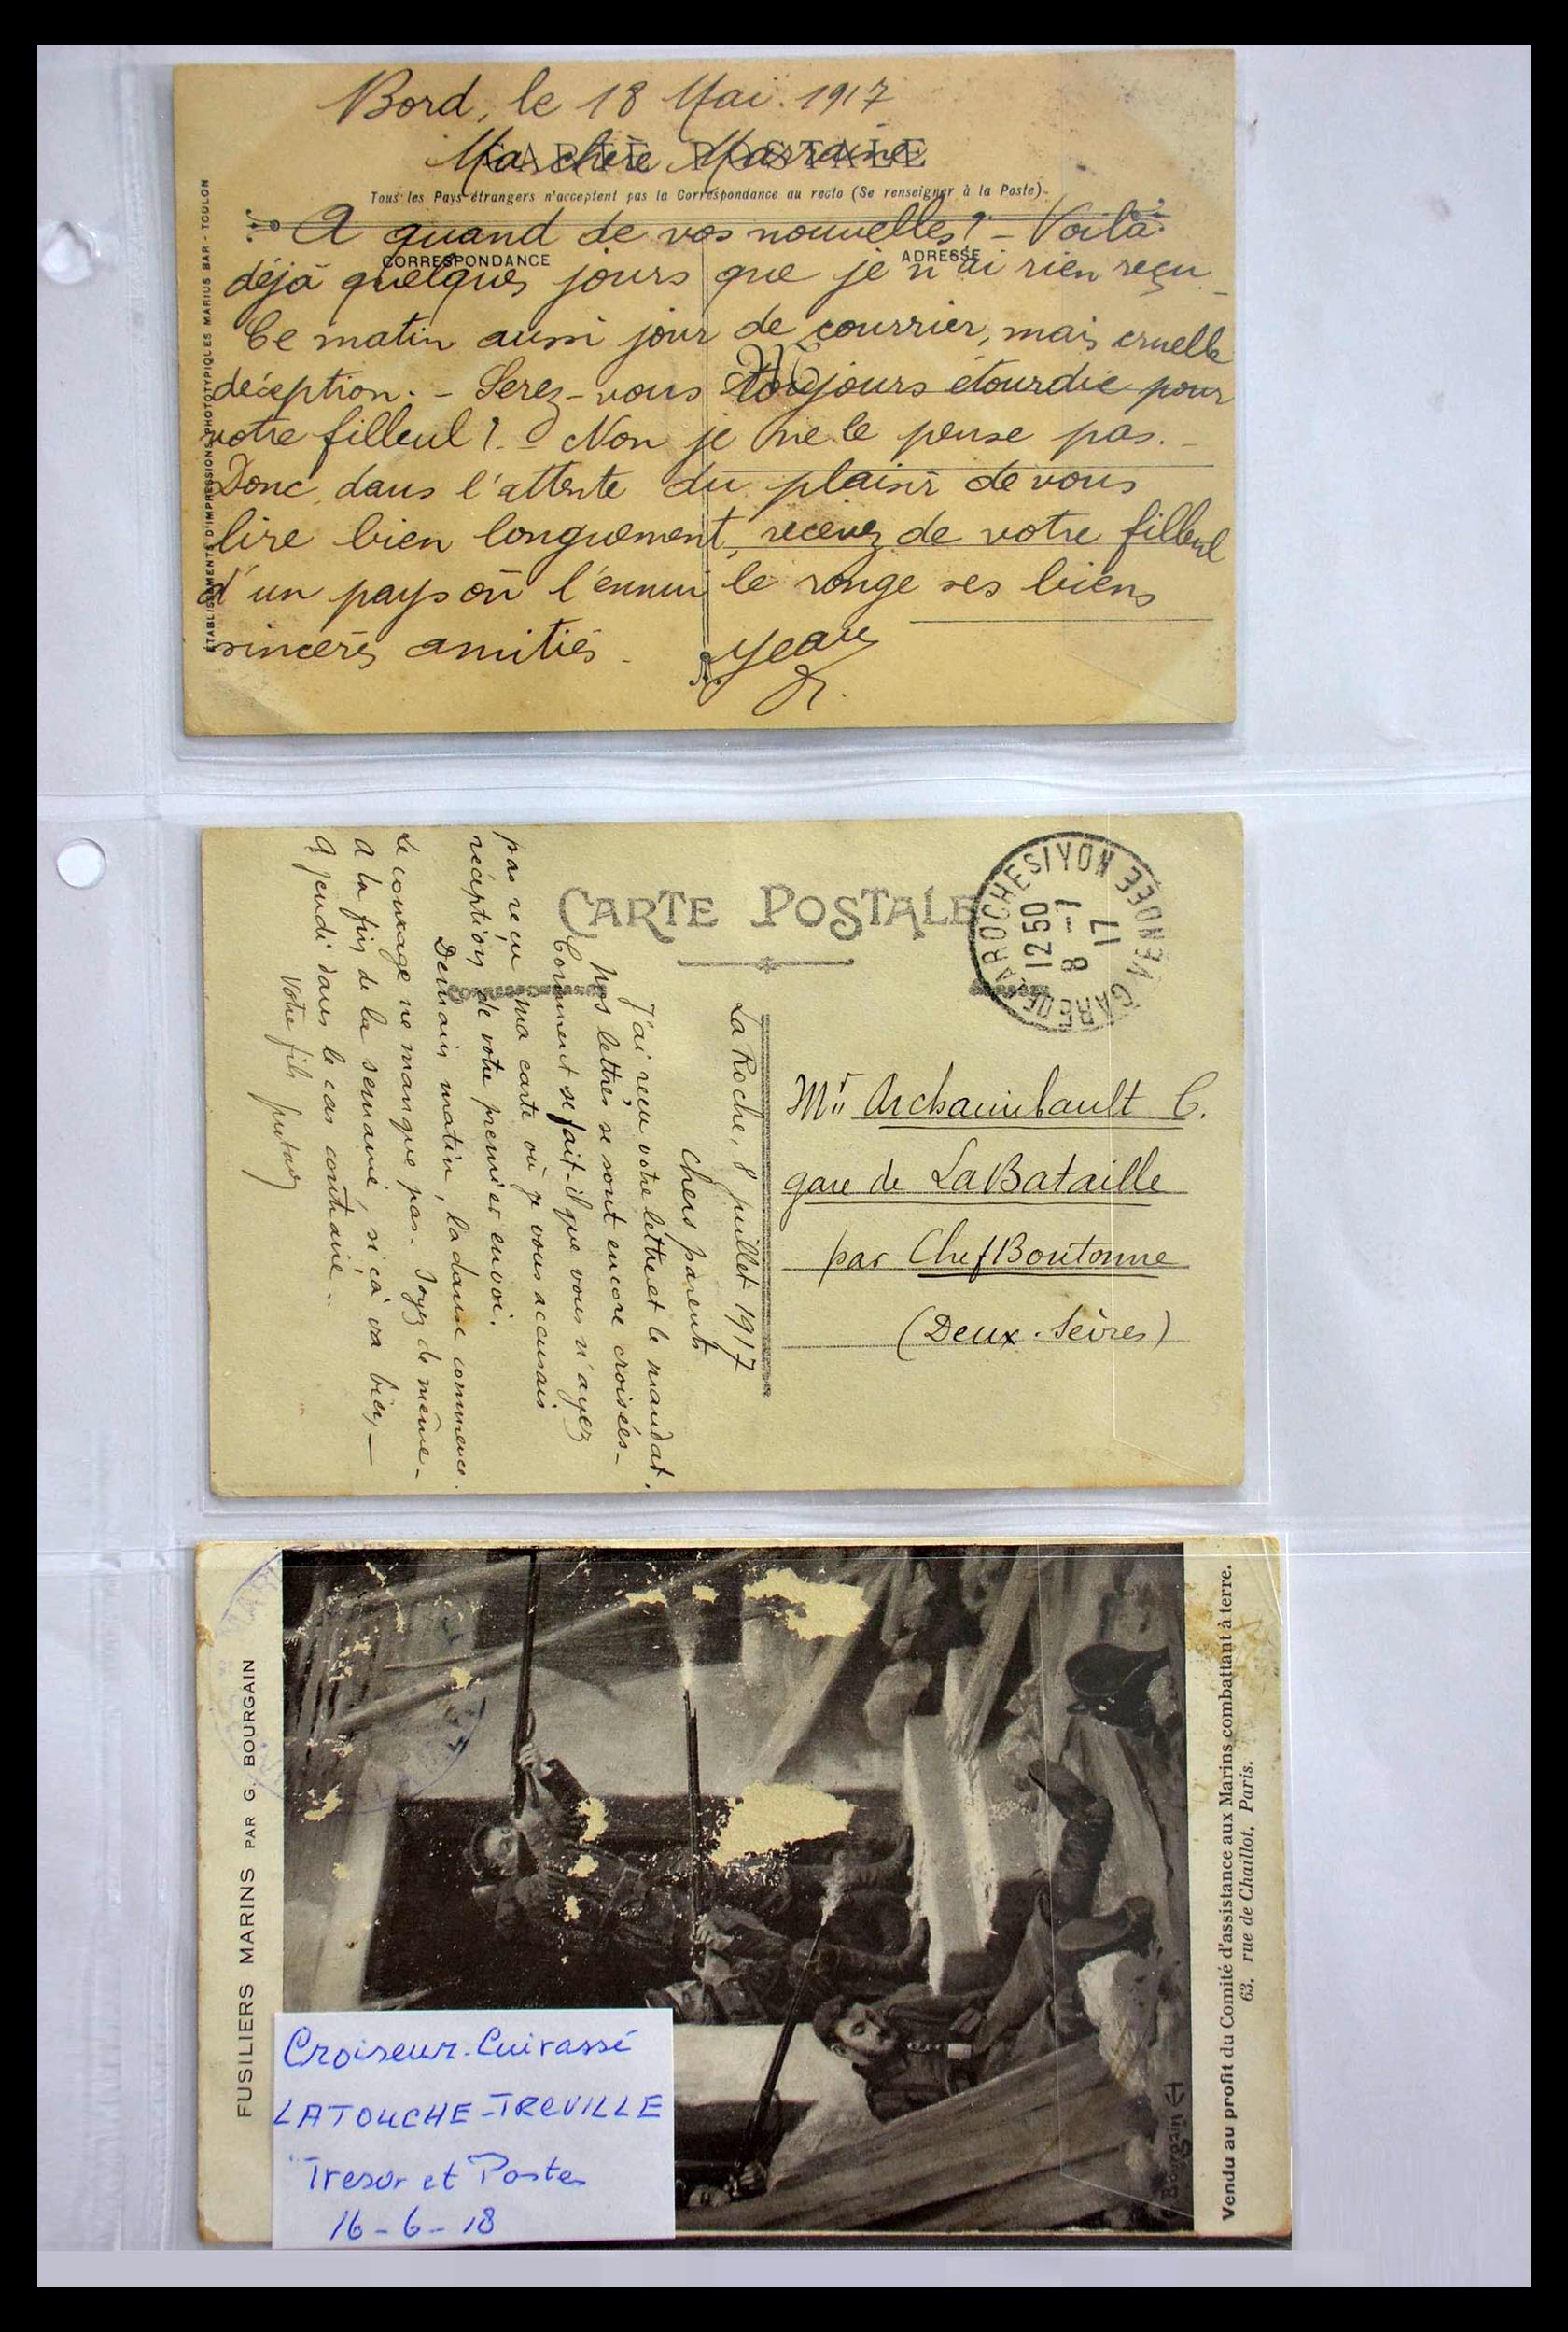 Bord, le 18 Mai. 1917
CARTE POSTALE
Ma chère Marraine
Tous les Pays étrangers n'acceptent pas la Correspondance au recto (Se renseigner à la Poste).
A quand de vos nouvelles? – Voilà
CORRESPONDANCE
ADRESSE
déjà quelques jours que je n'ai rien reçu –
Ce matin aussi jour de courrier, mais cruelle
déception. – Serez-vous toujours étourdie pour
votre filleul? – Non je ne le pense pas. –
Donc, dans l'attente du plaisir de vous
lire bien longuement, recevez de votre filleul
d'un pays où l'ennui le ronge ses biens
sincères amitiés – Jean
ETABLISSEMENTS D'IMPRESSIONS PHOTOTYPIQUES MARIUS BAR - TOULON
CARTE POSTALE
GARE DE LAROCHESIYON VENDEE
1250
8 -7
17
Mr Archambault C.
gare de La Bataille
par Chef Boutonne
(Deux-Sèvres)
La Roche, 8 juillet 1917
Chers parents
J'ai reçu votre lettre et le mandat.
Nos lettres se sont encore croisées –
Comment se fait-il que vous n'ayez
pas reçu ma carte où je vous accusais
réception de votre premier envoi.
Demain matin, la danse commence.
Le courage ne manque pas. Soyez de même –
A la fin de la semaine, si çà va bien, —
A jeudi dans le cas contraire ..
Votre fils
FUSILIERS MARINS PAR G. BOURGAIN
G Bourgain
Vendu au profit du Comité d'assistance aux Marins combattant à terre.
63, rue de Chaillot, Paris.
Croiseur-Cuirassé
LATOUCHE-TREVILLE
Tresor et Postes
16-6-18